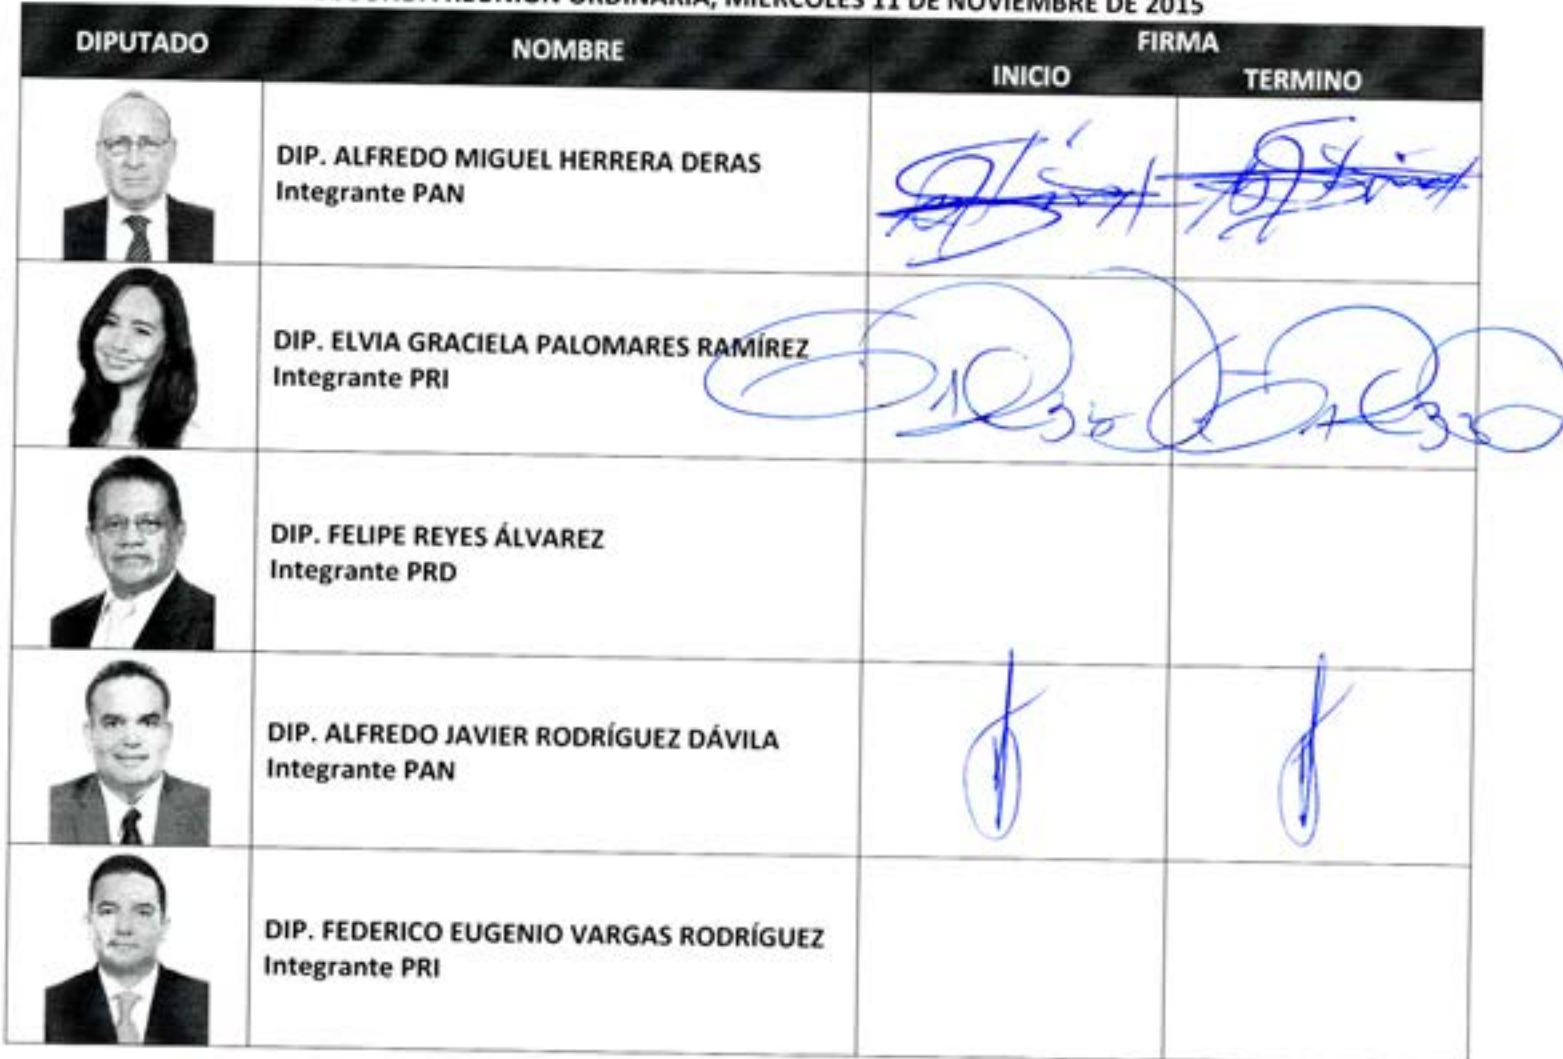 REUNIÓN ORDINARIA, MIÉRCOLES 11 DE NOVIEMBRE DE 2015
DIPUTADO NOMBRE FIRMA
INICIO TERMINO
DIP. ALFREDO MIGUEL HERRERA DERAS
Integrante PAN
DIP. ELVIA GRACIELA PALOMARES RAMÍREZ
Integrante PRI
DIP. FELIPE REYES ÁLVAREZ
Integrante PRD
DIP. ALFREDO JAVIER RODRÍGUEZ DÁVILA
Integrante PAN
DIP. FEDERICO EUGENIO VARGAS RODRÍGUEZ
Integrante PRI